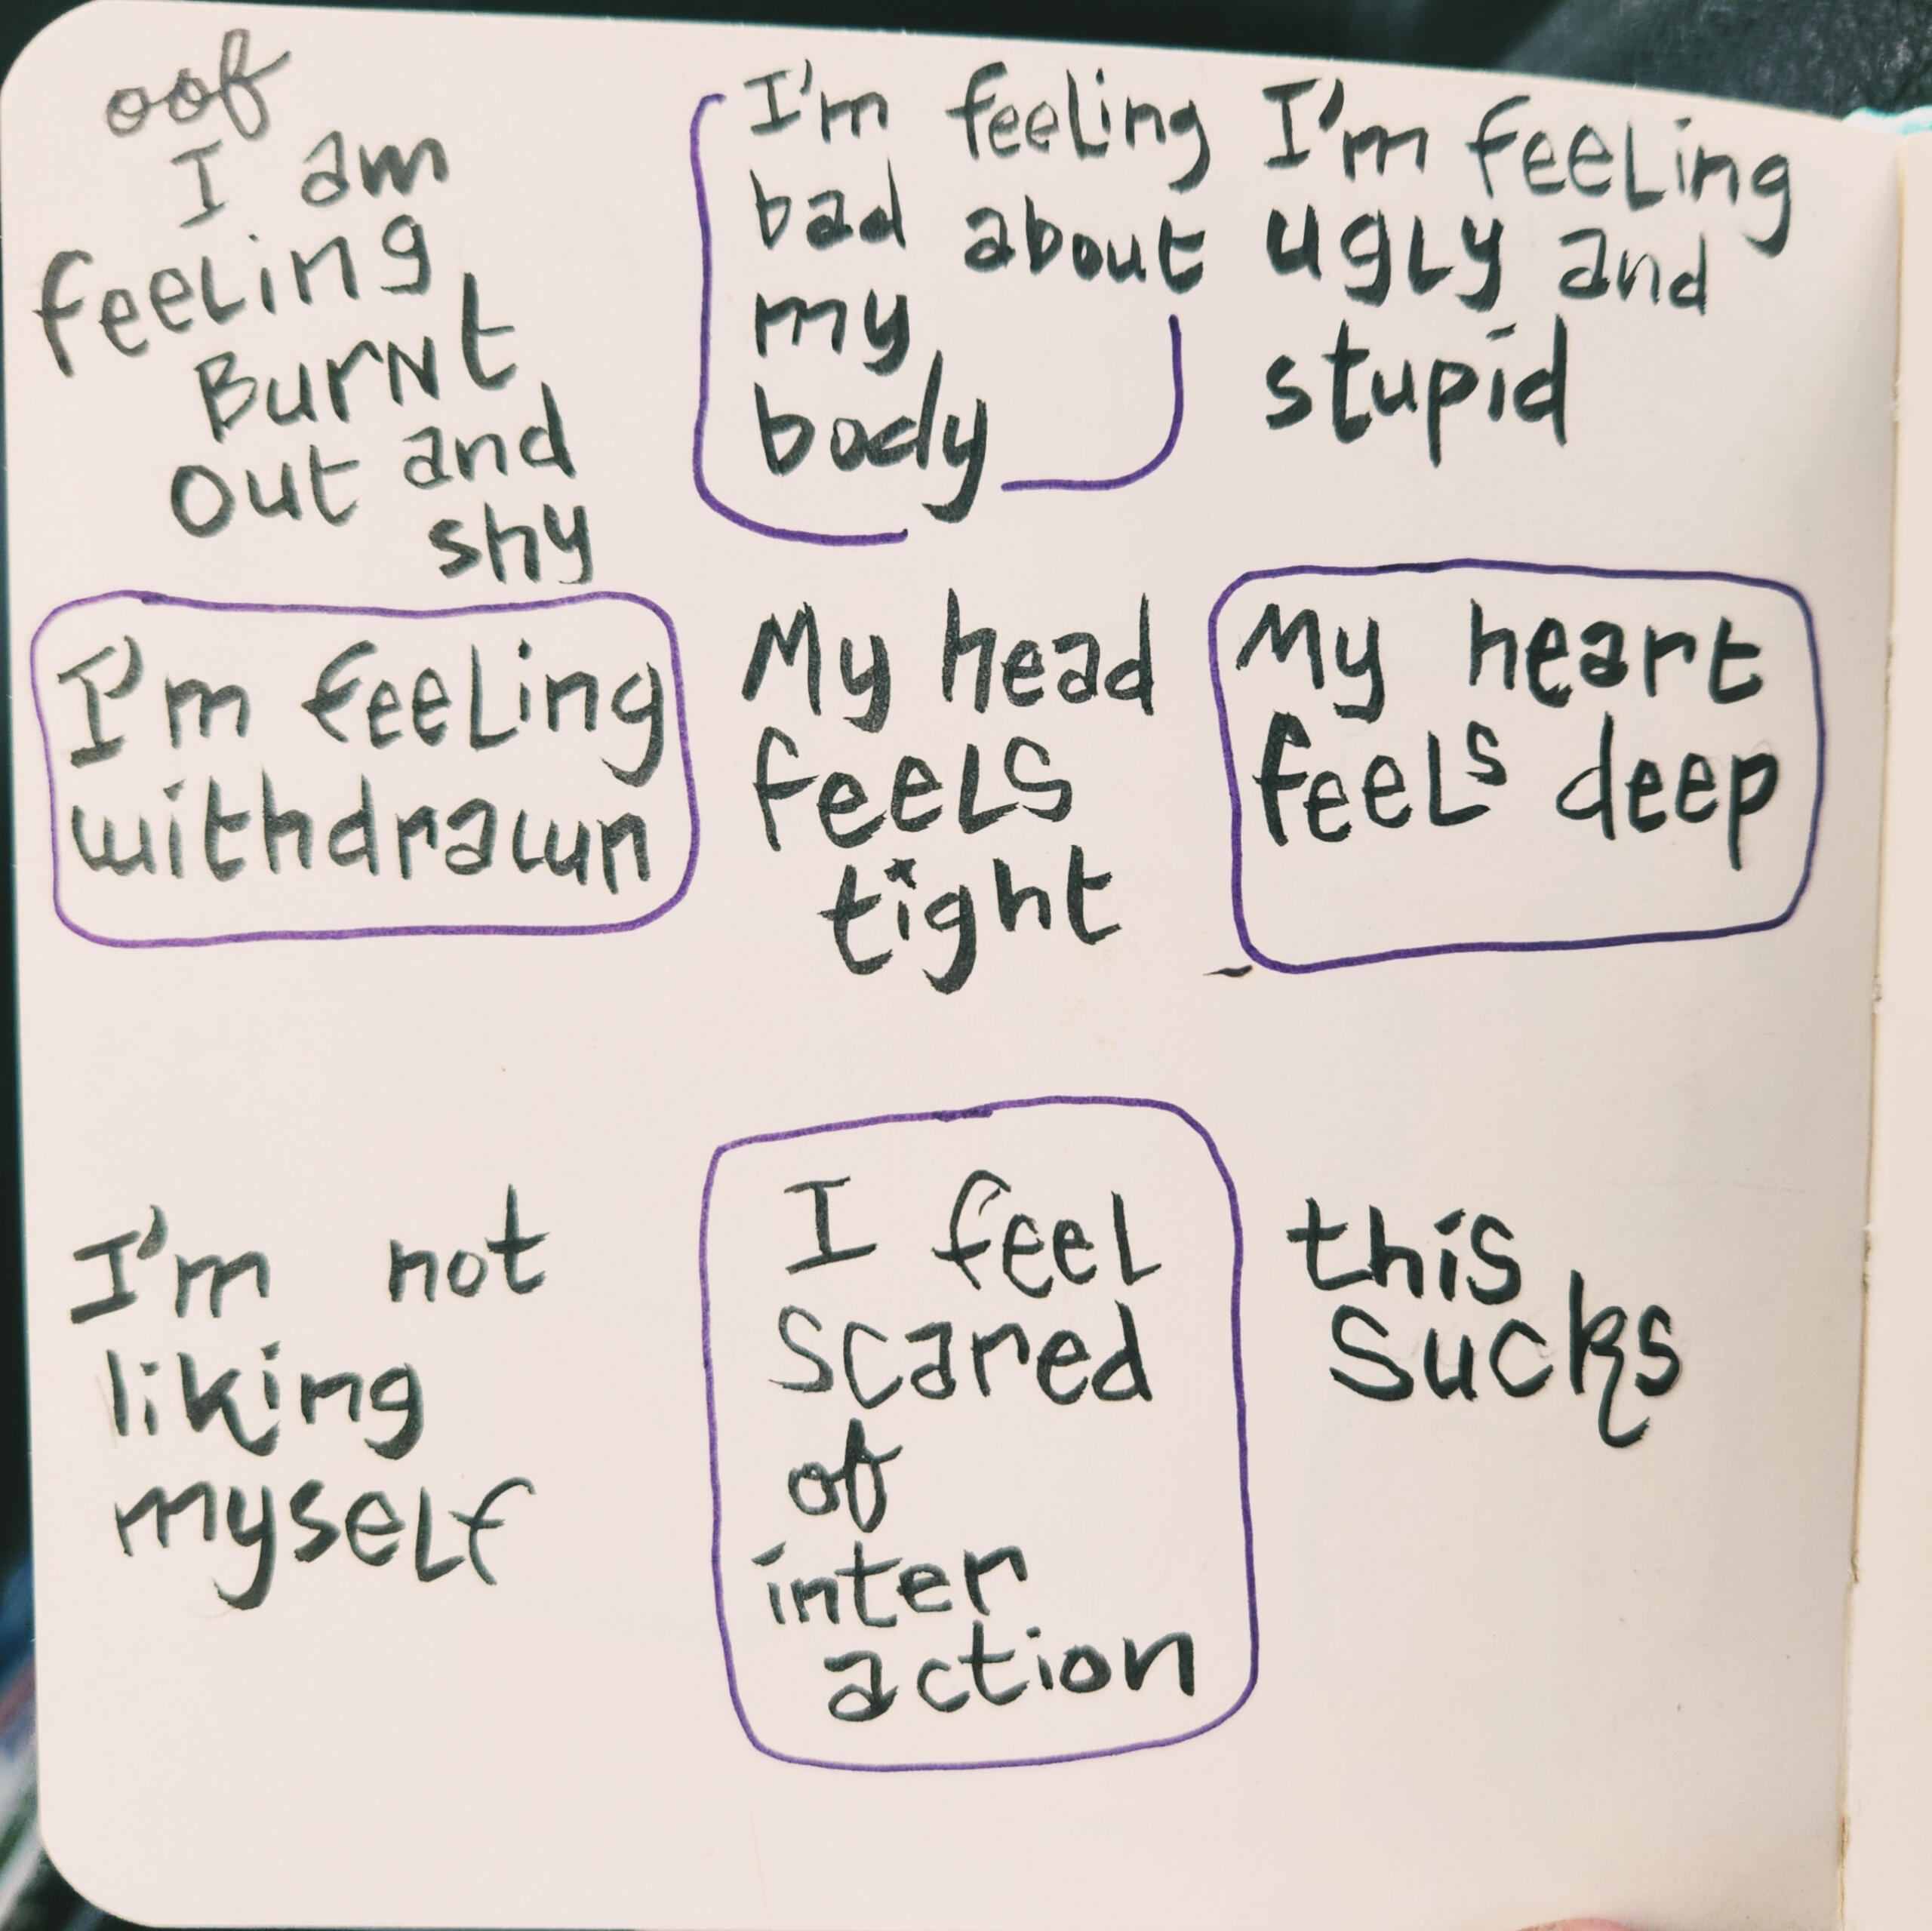 oof
I am
feeling
Burnt
out and
shy
I'm feeling
bad about
my
body
I'm feeling
ugly and
stupid
I'm feeling
withdrawn
My head
feels
tight
My heart
feels deep
I'm not
liking
myself
I feel
scared
of
inter
action
this
sucks